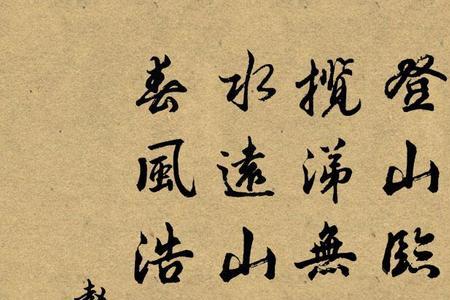 登山臨
攬涕無
水遠山
春風浩